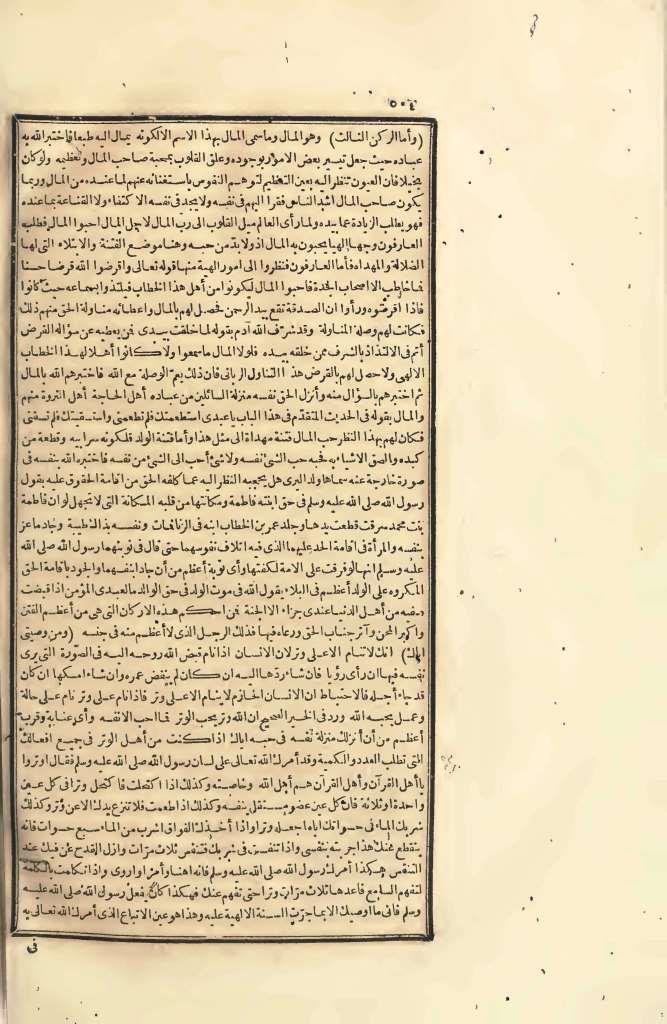 ٥٠٤
(وأما الركن الثالث) وهو المال وما سمى المال بهذا الاسم الا لكونه يمال اليه طبعا فاختبر الله به
عباده حيث جعل تيسير بعض الامور بوجوده وعلق القلوب بمحبة صاحب المال وتعظيمه ولو كان
بخيلا فان العيون تنظر اليه بعين التعظيم لتوهم النفوس باستغنائه عنهم لما عنده من المال وربما
يكون صاحب المال أشد الناس فقرا اليهم فى نفسه ولا يجد فى نفسه الا كتفاء ولا القناعة بما عنده
فهو يطلب الزيادة مما بيده ولما رأى العالم ميل القلوب الى رب المال لاجل المال احبوا المال فطلب
العارفون وجها الهيا يحبون به المال اذ ولا بد من حبه وهنا موضع الفتنة والابتلاء التى لها
الضلالة والمهداه فأما العارفون فنظروا الى امور الهية منها قوله تعالى واقرضوا الله قرضا حسنا
فما خاطب الا اصحاب الجدة فاحبوا المال ليكونوا من أهل هذا الخطاب فيلتذوا بسماعه حيث كانوا
فاذا اقرضوه ورأوا ان الصدقة تقع بيد الرحمن فحصل لهم بالمال واعطائه مناولة الحق منهم ذلك
فكانت لهم وصلة المناولة وقد شرف الله آدم بقوله لما خلقت بيدى فمن يعطيه عن سؤاله القرض
أتم فى الالتذاذ بالشرف ممن خلقه بيده فلولا المال ما سمعوا ولا كانوا أهلا لهذا الخطاب
الالهى ولا حصل لهم بالقرض هذا التناول الربانى فان ذلك يعم الوصلة مع الله فاختبرهم الله بالمال
ثم اختبرهم بالسؤال منه وأنزل الحق نفسه منزلة السائلين من عباده أهل الحاجة أهل الثروة منهم
والمال بقوله فى الحديث المتقدم فى هذا الباب يا عبدى استطعمتك فلم تطعمنى واستسقيتك فلم تسقنى
فكان لهم بهذا النظر حب المال فتنة مهداة الى مثل هذا وأما فتنة الولد فلكونه سر ابيه وقطعة من
كبده والصق الاشياء به فحبه حب الشئ نفسه ولا شئ أحب الى الشئ من نفسه فاختبره الله بنفسه فى
صورة خارجة عنه سماها ولد اليرى هل يحجبه النظر اليه عما كلفه الحق من اقامة الحقوق عليه يقول
رسول الله صلى الله عليه وسلم فى حق ابنته فاطمة ومكانتها من قلبه المكانة التى لا تجهل لو ان فاطمة
بنت محمد سرقت قطعت يدها وجلد عمر بن الخطاب ابنه فى الزنا فمات ونفسه بذلك طيبة وجاد ماعز
بنفسه والمرأة فى اقامة الحد عليهما الذى فيه اتلاف نفوسهما حتى قال فى توبتهما رسول الله صلى الله
عليه وسلم انها لو فرقت على الامة لكفتها وأى توبة أعظم من أن جادا بنفسهما والجود باقامة الحق
المكروه على الولد أعظم فى البلاء يقول الله فى موت الولد فى حق الوالد ما لعبدى المؤمن اذا قبضت
صفيه من أهل الدنيا عندى جزاء الا الجنة فمن احكم هذه الاركان التى هى من أعظم الفتن
واكبر المحن وآثر جناب الحق ورعاه فيها فذلك الرجل الذى لا أعظم منه فى جنسه (ومن وصيتى
اياك) انك لا تنام الا على وتر لان الانسان اذا نام قبض الله روحه اليه فى الصورة التى يرى
نفسه فيها ان رأى رؤيا فان شاء ردها اليه ان كان لم ينقض عمره وان شاء امسكها ان كان
قد جاء أجله فالاحتياط ان الانسان الحازم لا ينام الا على وتر فاذا نام على وتر نام على حالة
وعمل يحبه الله ورد فى الخبر الصحيح ان الله وتر يحب الوتر فما احب الا نفسه وأى عناية وقرب
أعظم من أن أنزلك منزلة نفسه فى حبه اياك اذا كنت من أهل الوتر فى جميع افعالك
التى تطلب العدد والكمية وقد أمرك الله تعالى على لسان رسول الله صلى الله عليه وسلم فقال اوتروا
يا أهل القرآن وأهل القرآن هم أهل الله وخاصته وكذلك اذا اكتحلت فاكتحل وترا فى كل عين
واحدة او ثلاثة فان كل عين عضو مستقل بنفسه وكذلك اذا طعمت فلا تنزع يدك الا عن وتر وكذلك
شربك الماء فى حسواتك اياه اجعله وترا واذا أخذك الفواق اشرب من الماء سبع حسوات فانه
ينقطع عنك هذا جربته بنفسى واذا تنفست فى شربك فتنفس ثلاث مرات وازل القدح عن فيك عند
التنفس هكذا أمرك رسول الله صلى الله عليه وسلم فانه اهنأ وأمرأ واروى واذا تكلمت بالكلمة
لتفهم السامع فاعدها ثلاث مرات وترا حتى تفهم عنك فهكذا كان يفعل رسول الله صلى الله عليه
وسلم فانى ما اوصيك الا بما جرت السنة الالهية عليه وهذا هو عين الاتباع الذى أمرك الله تعالى به
فى